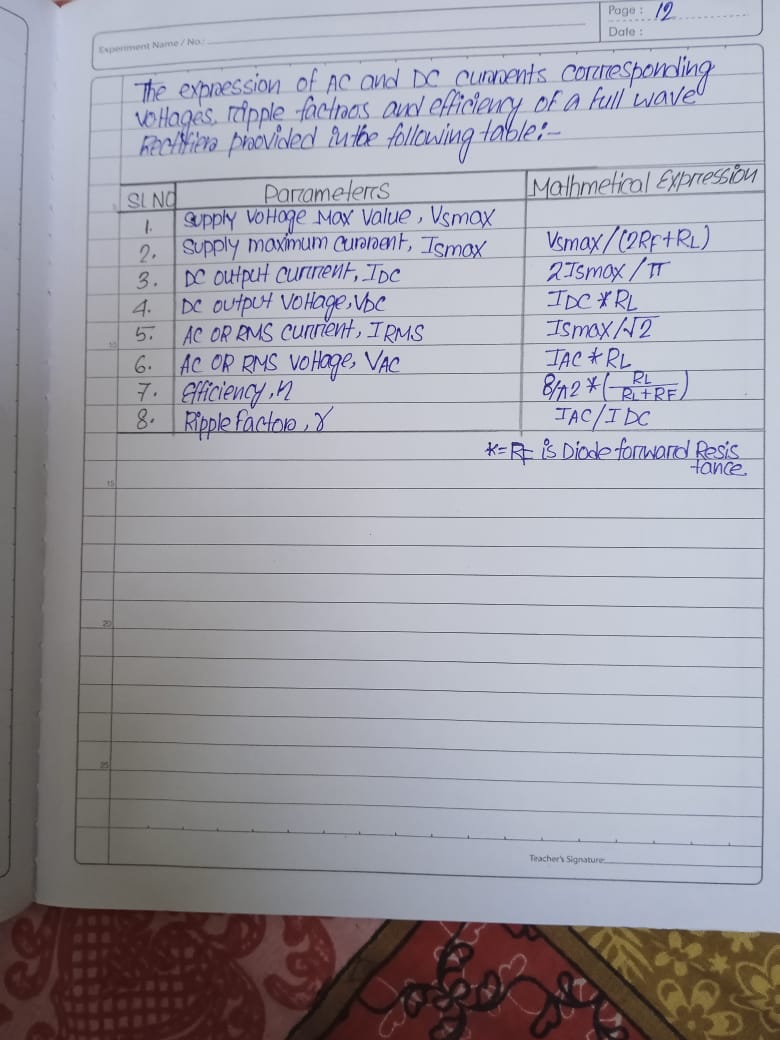 Page : 12
Experiment Name / No.:
Date :
The expression of AC and DC currents corresponding
voltages, ripple factors and efficiency of a full wave
Rectifiers provided in the following table:-
SL NO Parameters Mathmetical Expression
1. Supply Voltage Max Value, Vsmax
2. Supply maximum current, Ismax Vsmax/(2RF+RL)
3. DC output current, IDC 2Ismax/π
4. DC output voltage, VDC IDC * RL
5. AC OR RMS current, IRMS Ismax/√2
10
6. AC OR RMS voltage, VAC IAC * RL
7. Efficiency, η 8/π2 * (RL/RL+RF)
8. Ripple factor, γ IAC/IDC
*= RF is Diode forward Resis
tance.
15
20
25
Teacher's Signature: